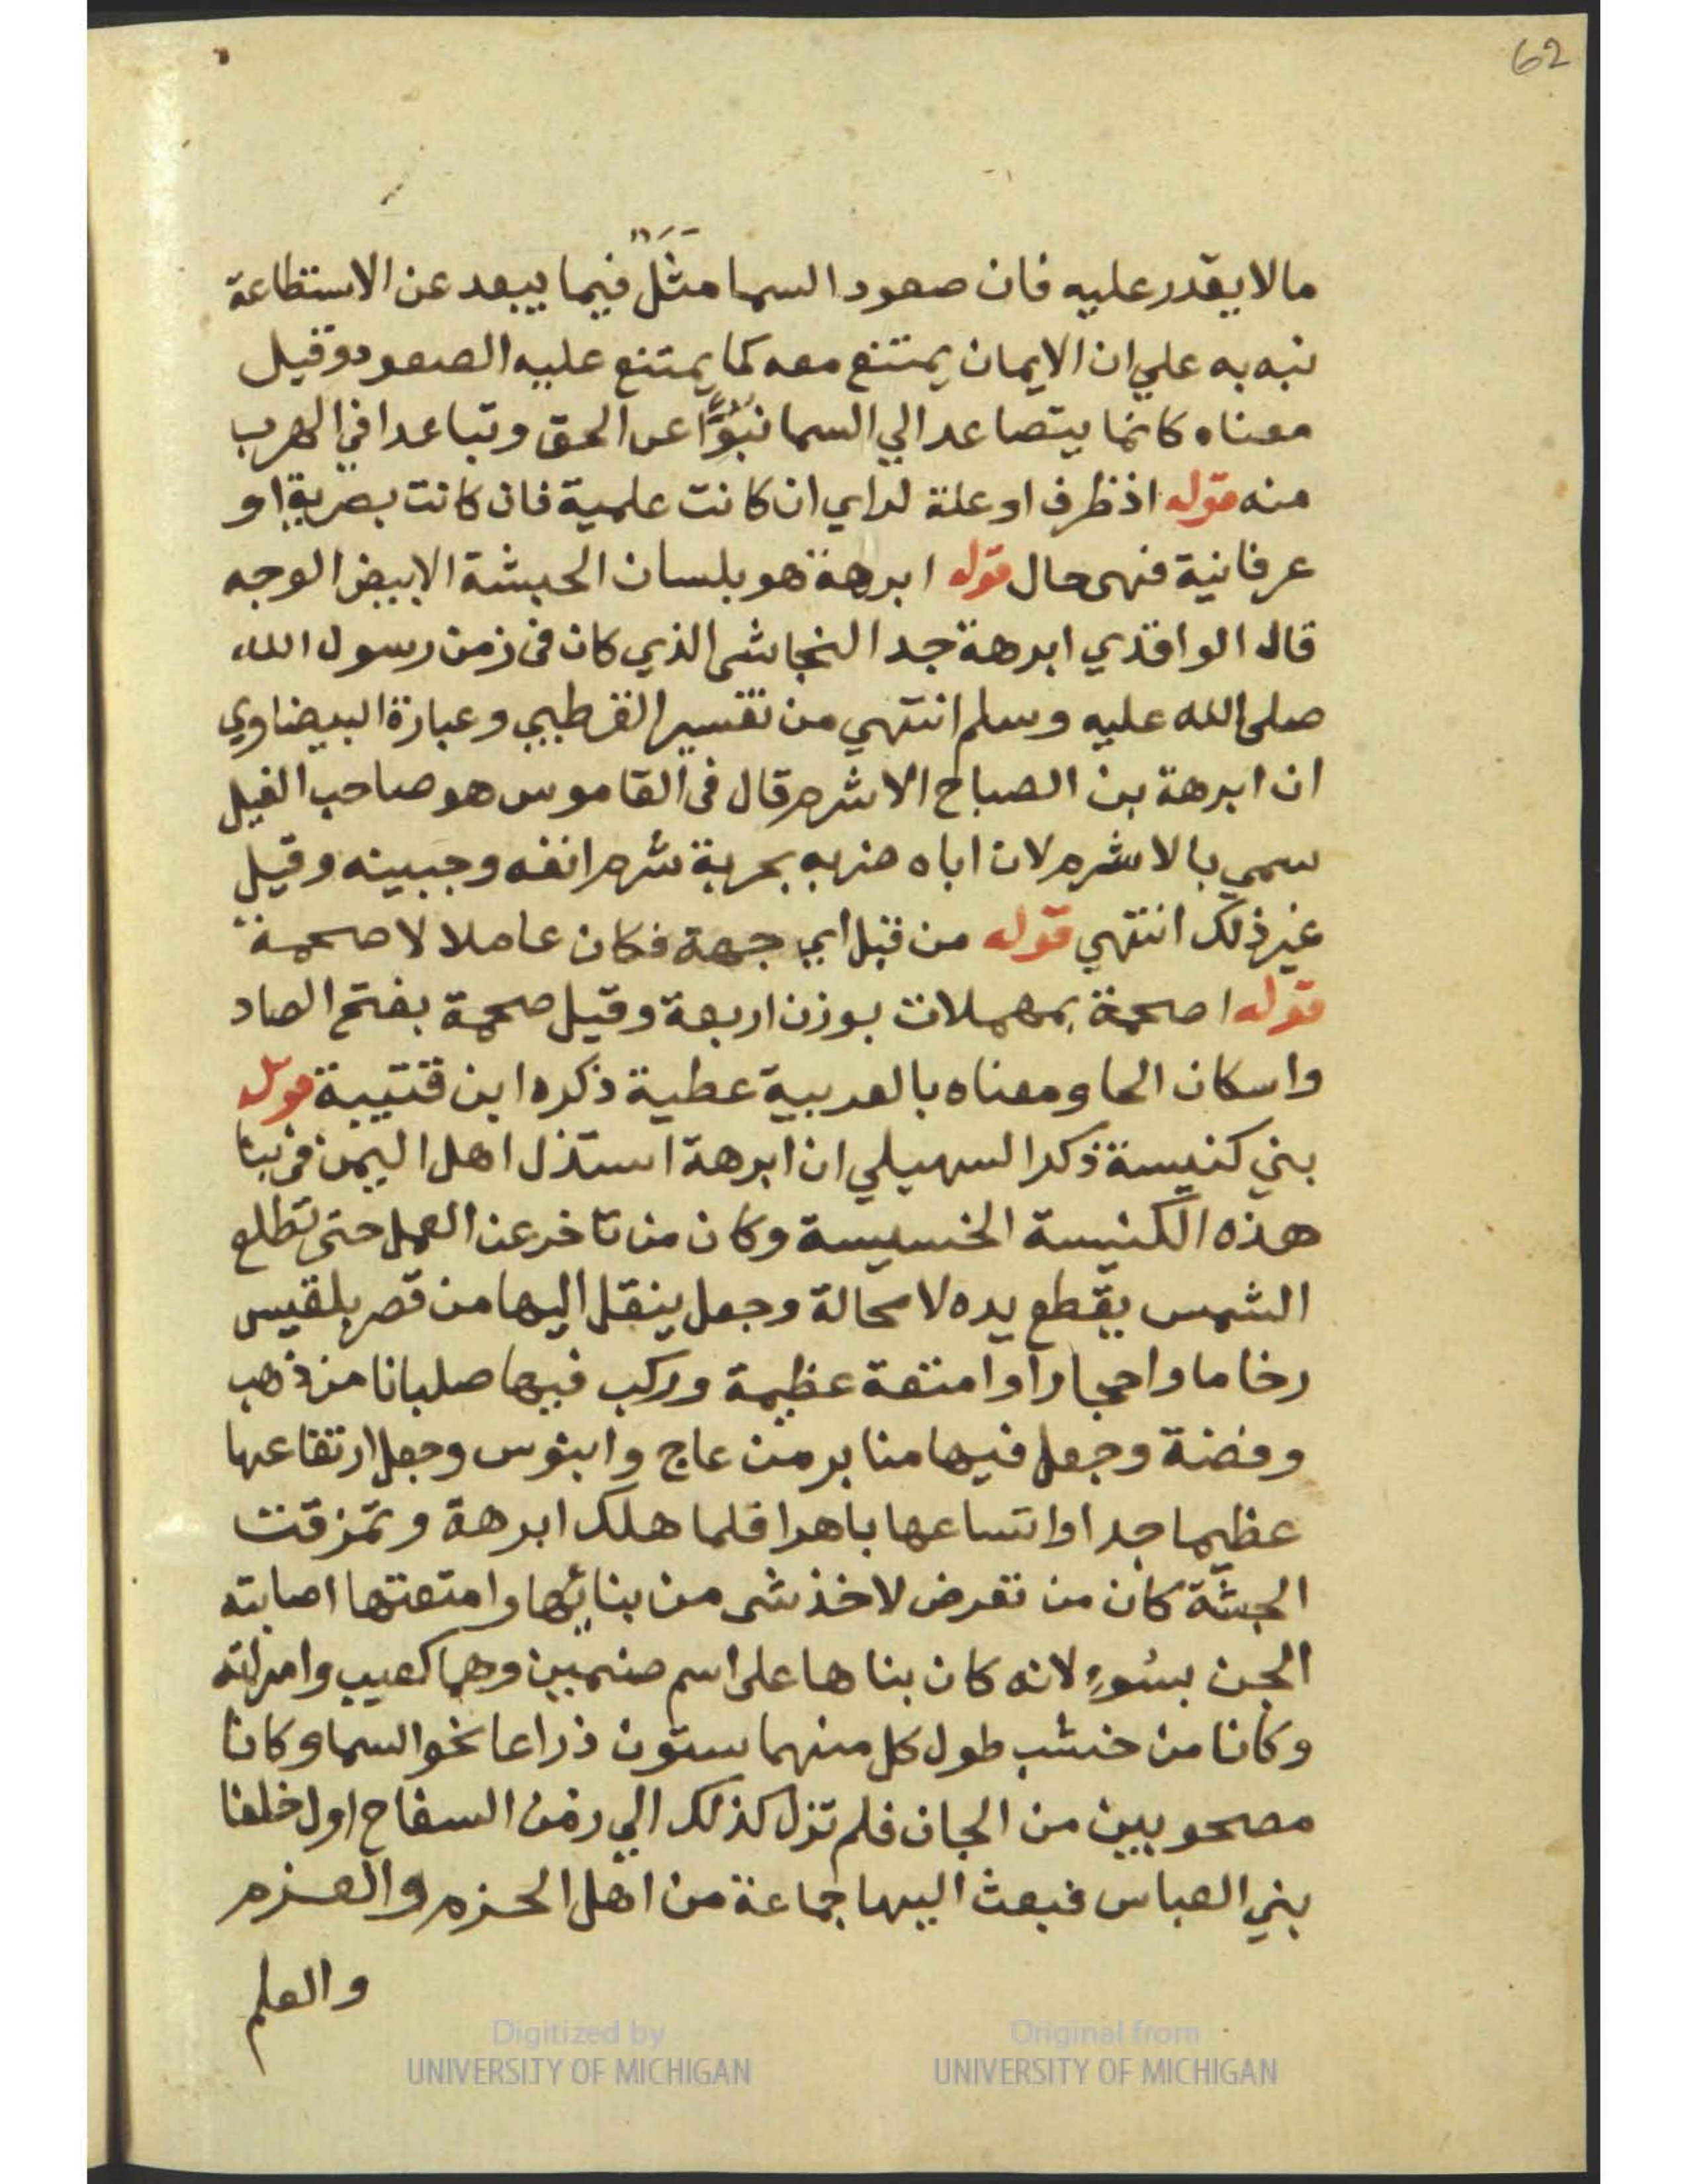 62
مالا يقدر عليه فان صعود السما مَثَلٌ فيما يبعد عن الاستطاعة
نبه به علي ان الايمان يمتنع معه كما يمتنع عليه الصعود وقيل
معناه كانما يتصاعد الي السما نبُوًّا عن الحق وتباعدا في الهرب
منه قوله اذ ظرف او علة لراي ان كانت علمية فان كانت بصرية او
عرفانية فهى حال قوله ابرهة هو بلسان الحبشة الابيض الوجه
قال الواقدي ابرهة جد النجاشى الذي كان فى زمن رسول الله
صلى الله عليه وسلم انتهي من تفسير القرطبي وعبارة البيضاوي
ان ابرهة بن الصباح الاشرم قال فى القاموس هو صاحب الفيل
سمي بالاشرم لان اباه ضربه بحربة شرم انفه وجبينه وقيل
غير ذلك انتهي قوله من قبل اي جهة فكان عاملا لاصحمة
قوله اصحمة بمهملات بوزن اربعة وقيل صحمة بفتح الصاد
واسكان الحا ومعناه بالعربية عطية ذكره ابن قتيبة قوله
بني كنيسة ذكر السهيلي ان ابرهة استذل اهل اليمن فى بنا
هذه الكنيسة الخسيسة وكان من تاخر عن العمل حتى تطلع
الشمس يقطع يده لا محالة وجعل ينقل اليها من قصر بلقيس
رخاما واحجارا وامتعة عظيمة وركب فيها صلبانا من ذهب
وفضة وجعل فيها منابر من عاج وابنوس وجعل ارتفاعها
عظيما جدا واتساعها باهرا فلما هلك ابرهة وتمزقت
الحبشة كان من تعرض لاخذ شى من بنائها وامتعتها اصابته
الجن بسُوءٍ لانه كان بناها على اسم صنمين وهما كعيب وامراته
وكانا من خشب طول كل منهما ستون ذراعا نحو السما وكانا
مصحوبين من الجان فلم تزل كذلك الي زمن السفاح اول خلفا
بني العباس فبعث اليها جماعة من اهل الحزم والعزم
والعلم
Digitized by UNIVERSITY OF MICHIGAN
Original from UNIVERSITY OF MICHIGAN